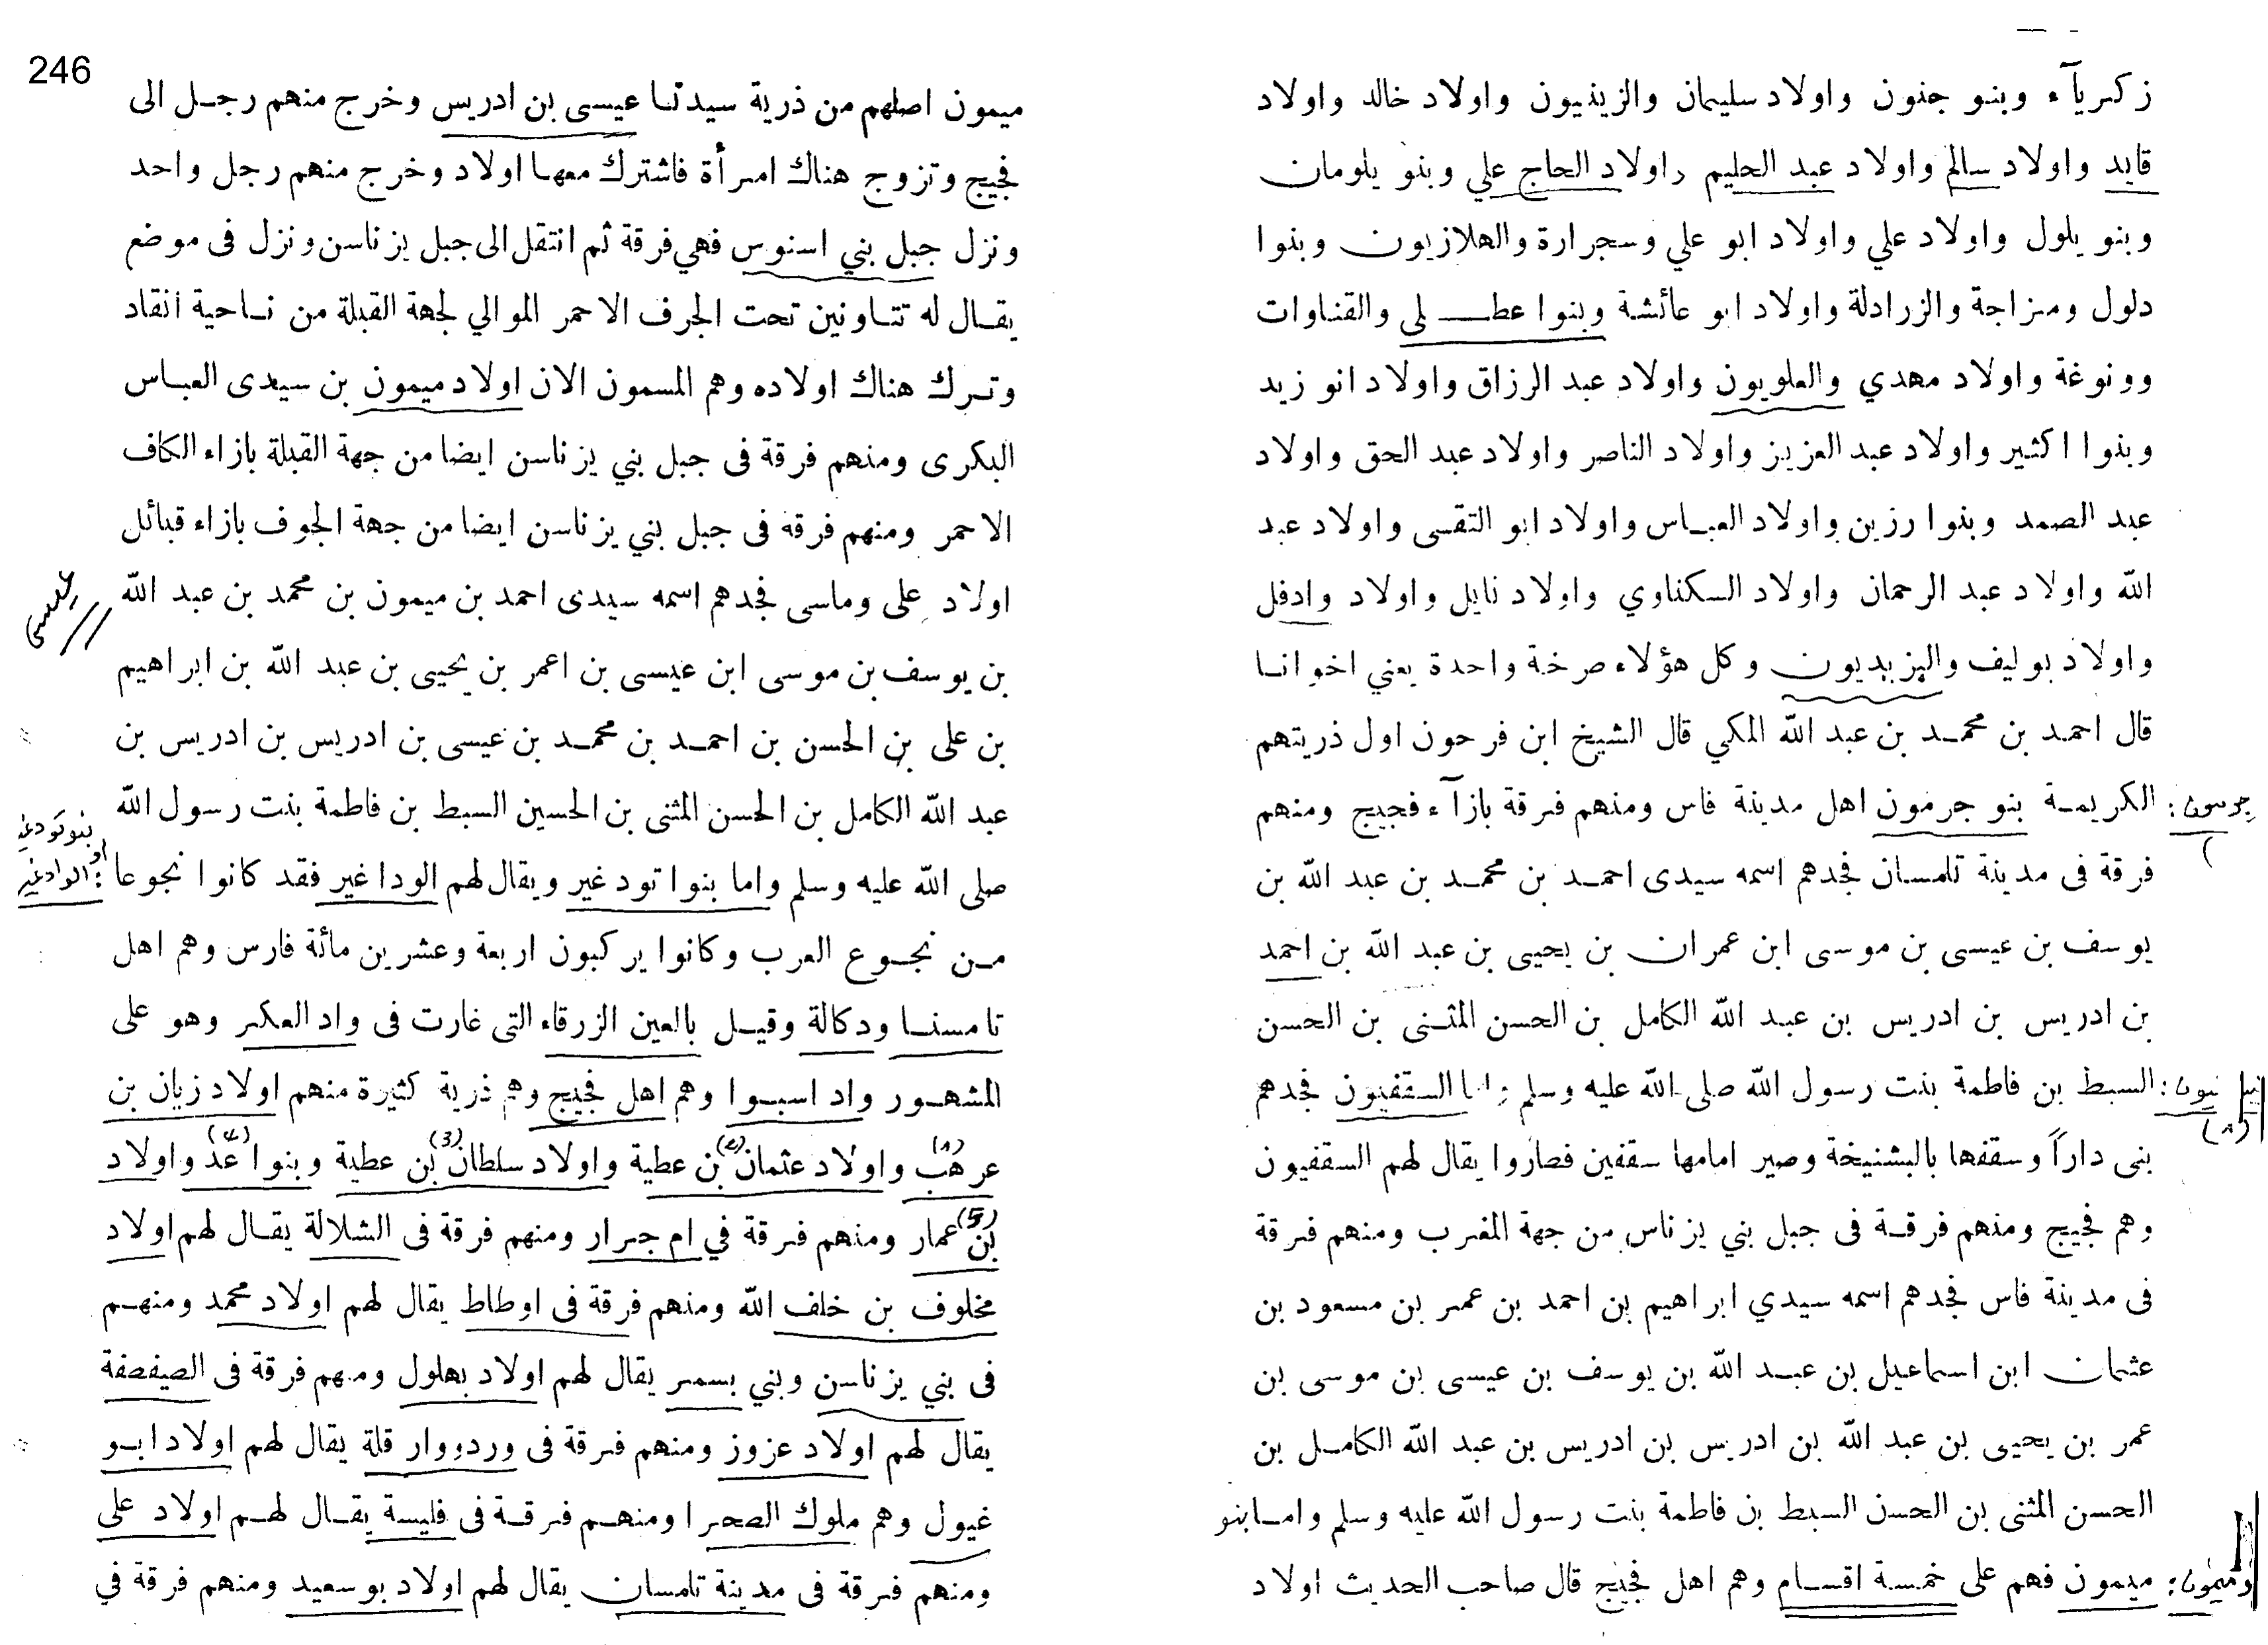 زكرياء وبنو جنون واولاد سليمان والزينيون واولاد خالد واولاد
قايد واولاد سالم واولاد عبد الحليم واولاد الحاج علي وبنو يلومان
وبنو يلول واولاد علي واولاد ابو علي وسجرارة والهلازيون وبنوا
دلول ومزاجة والزرادلة واولاد ابو عائشة وبنوا عطلى والقناوات
وونوغة واولاد مهدي والعلويون واولاد عبد الرزاق واولاد انو زيد
وبنوا اكثير واولاد عبد العزيز واولاد الناصر واولاد عبد الحق واولاد
عبد الصمد وبنوا رزين واولاد العباس واولاد ابو التقسى واولاد عبد
الله واولاد عبد الرحمان واولاد السكناوي واولاد نايل واولاد وادفل
واولاد بوليف واليزيديون وكل هؤلاء صرخة واحدة يعني اخوانا
قال احمد بن محمد بن عبد الله المكي قال الشيخ ابن فرحون اول ذريتهم
الكريمة بنو جرمون اهل مدينة فاس ومنهم فرقة بازآء فجيج ومنهم
فرقة فى مدينة تلمسان فجدهم اسمه سيدى احمد بن محمد بن عبد الله بن
يوسف بن عيسى بن موسى ابن عمران بن يحيى بن عبد الله بن احمد
بن ادريس بن ادريس بن عبد الله الكامل بن الحسن المثنى بن الحسن
السبط بن فاطمة بنت رسول الله صلى الله عليه وسلم واما السقفيون فجدهم
بنى داراً وسقفها بالبشنيخة وصير امامها سقفين فصاروا يقال لهم السقفيون
وهم فجيج ومنهم فرقة فى جبل بني يزناس من جهة المغرب ومنهم فرقة
فى مدينة فاس فجدهم اسمه سيدي ابراهيم بن احمد بن عمر بن مسعود بن
عثمان ابن اسماعيل بن عبد الله بن يوسف بن عيسى بن موسى بن
عمر بن يحيى بن عبد الله بن ادريس بن ادريس بن عبد الله الكامل بن
الحسن المثنى بن الحسن السبط بن فاطمة بنت رسول الله عليه وسلم واما بنو
ميمون فهم على خمسة اقسام وهم اهل فجيج قال صاحب الحديث اولاد
جرمون:
(١)
وميمون:
246
ميمون اصلهم من ذرية سيدنا عيسى بن ادريس وخرج منهم رجل الى
فجيج وتزوج هناك امرأة فاشترك معها اولاد وخرج منهم رجل واحد
ونزل جبل بني اسنوس فهي فرقة ثم انتقل الى جبل يزناسن ونزل فى موضع
يقال له تتاونين تحت الجرف الاحمر الموالي لجهة القبلة من ناحية انقاد
وترك هناك اولاده وهم المسمون الان اولاد ميمون بن سيدى العباس
البكرى ومنهم فرقة فى جبل بني يزناسن ايضا من جهة القبلة بازاء الكاف
الاحمر ومنهم فرقة فى جبل بني يزناسن ايضا من جهة الجوف بازاء قبائل
اولاد على وماسى فجدهم اسمه سيدى احمد بن ميمون بن محمد بن عبد الله
بن يوسف بن موسى ابن عيسى بن اعمر بن يحيى بن عبد الله بن ابراهيم
بن على بن الحسن بن احمد بن محمد بن عيسى بن ادريس بن ادريس بن
عبد الله الكامل بن الحسن المثنى بن الحسين السبط بن فاطمة بنت رسول الله
صلى الله عليه وسلم واما بنوا تودغير ويقال لهم الوداغير فقد كانوا نجوعا
من نجوع العرب وكانوا يركبون اربعة وعشرين مائة فارس وهم اهل
تامسنا ودكالة وقيل بالعين الزرقاء التى غارت فى واد العكر وهو على
المشهور واد اسبوا وهم اهل فجيج وهم ذرية كثيرة منهم اولاد زيان بن
عرهب (1) واولاد عثمان (2) بن عطية واولاد سلطان (3) بن عطية وبنوا عد (4) واولاد
بن عمار (5) ومنهم فرقة في ام جرار ومنهم فرقة فى الشلالة يقال لهم اولاد
مخلوف بن خلف الله ومنهم فرقة فى اوطاط يقال لهم اولاد محمد ومنهم
فى بني يزناسن وبني بسمر يقال لهم اولاد بهلول ومنهم فرقة فى الصيفصفة
يقال لهم اولاد عزوز ومنهم فرقة فى وردووار قلة يقال لهم اولاد ابو
غيول وهم ملوك الصحرا ومنهم فرقة فى فليسة يقال لهم اولاد على
ومنهم فرقة فى مدينة تلمسان يقال لهم اولاد بوسعيد ومنهم فرقة في
عيسى
او الوادغير: